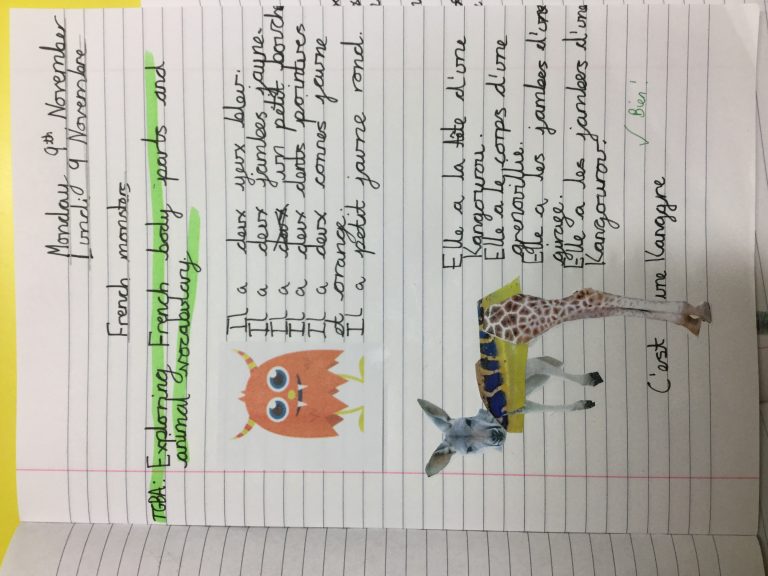 Monday 9th November
Lundi 9 Novembre
French monsters
TGBA: Exploring French body parts and
animal vocabulary
Il a deux yeux bleu.
Il a deux jambes jayne.
Il a un petit bouch
Il a deux dents pointves
Il a deux cornes jaune
et orange
Il a petit jaune rond.
Elle a la tête d'une
Kangourou.
Elle a le corps d'une
grenouille.
Elle a les jambes d'une
giraffe.
Elle a les jambes d'une
Kangourou.
✓ Bien!
C'est une Kanggre